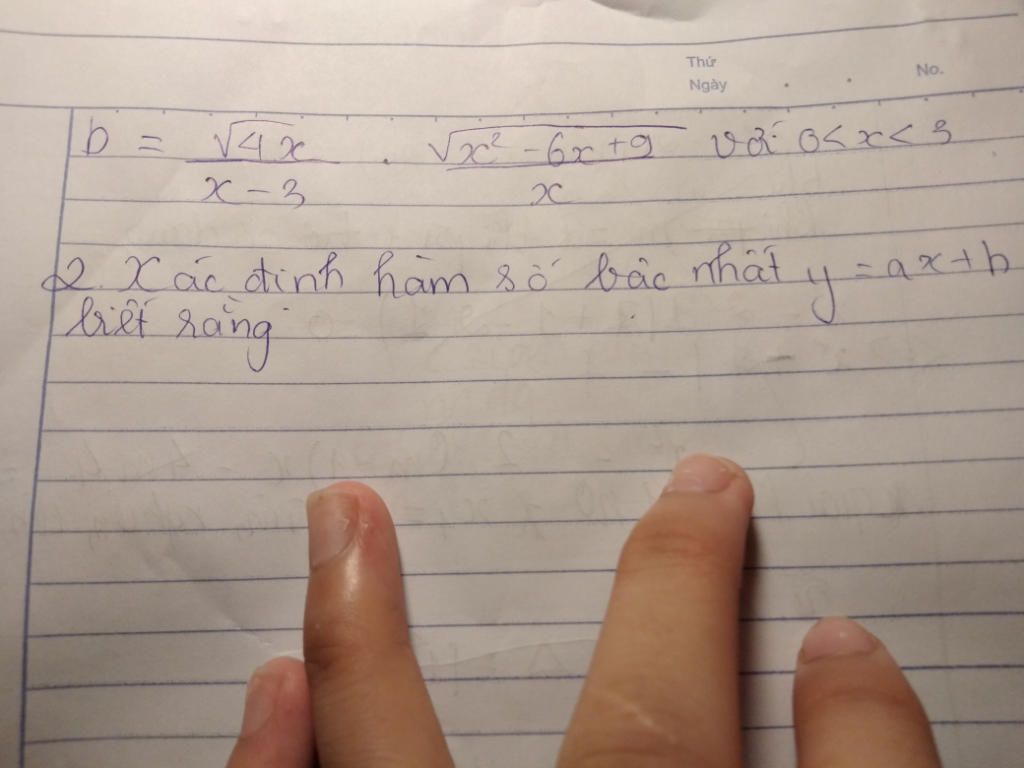 Thứ
Ngày . . No.
b = √4x / x - 3 . √x² - 6x + 9 / x với 0 < x < 3
2. Xác định hàm số bậc nhất y = ax + b
biết rằng